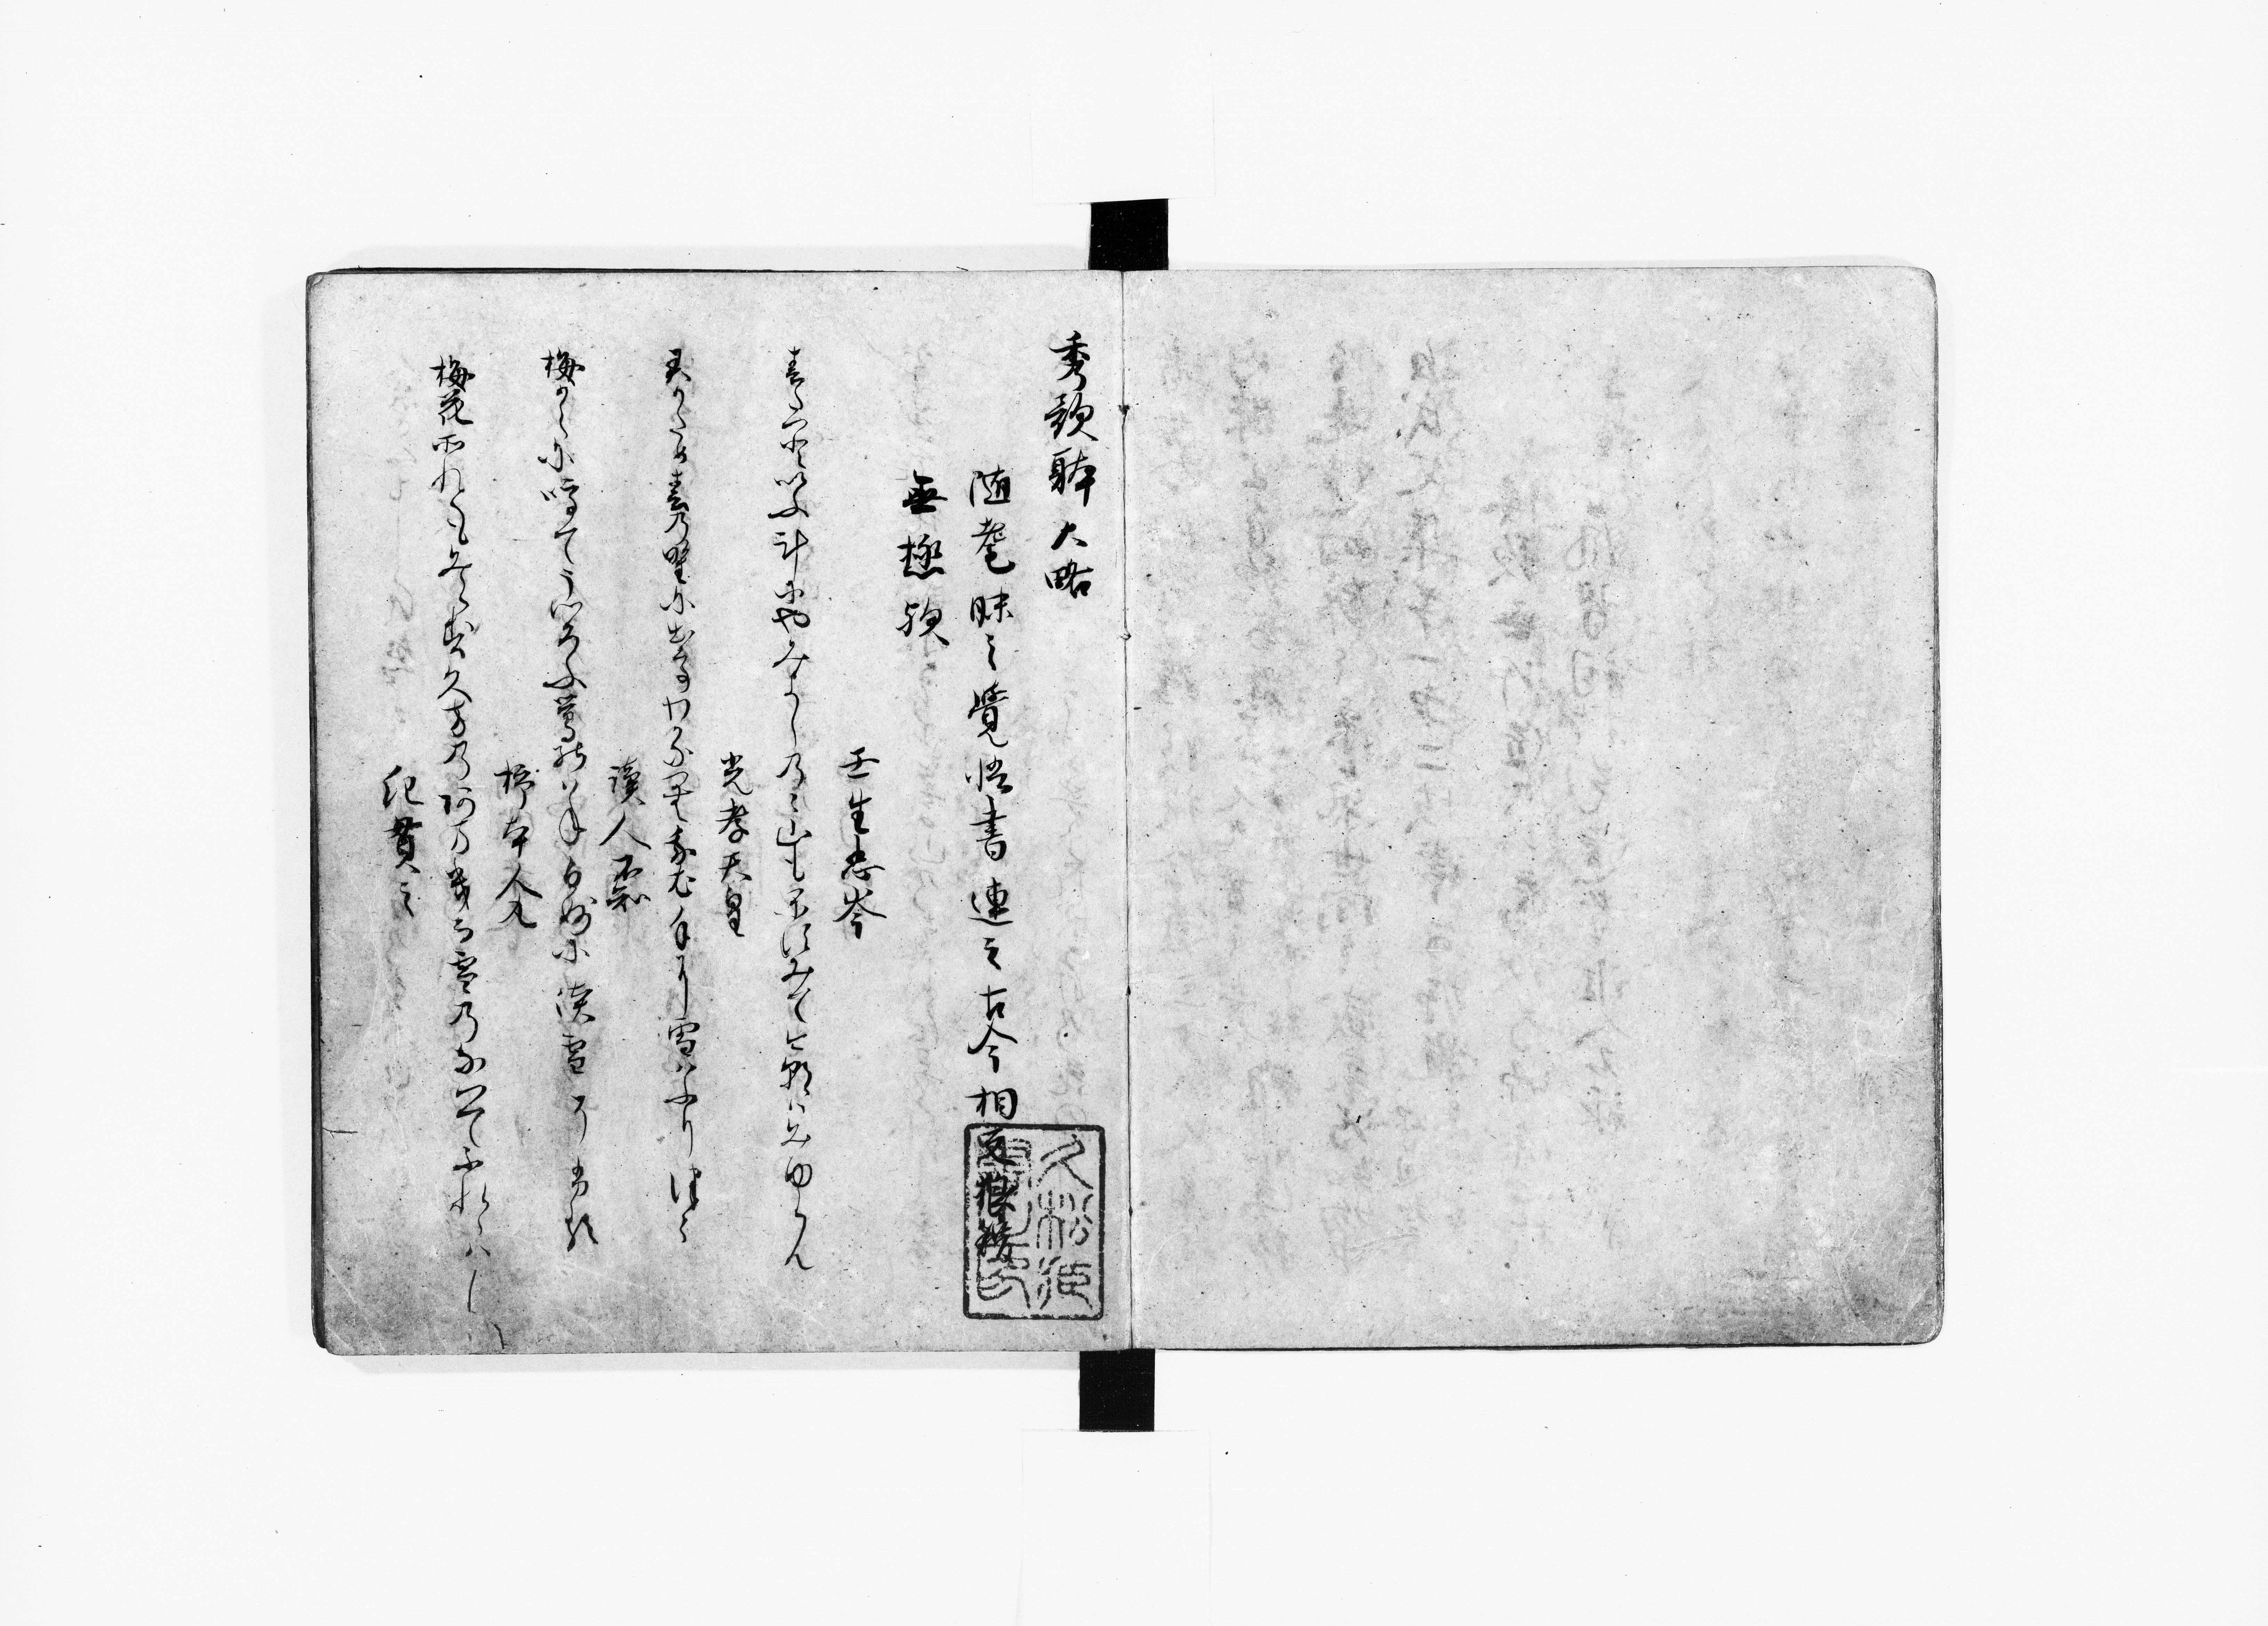 秀歌躰大略
随耄昧之覺悟書連之古今相交狼藉
無極歟
壬生忠岑
春たつといふ計にやみよしのゝ山もかすみてけさはみゆらん
光孝天皇
君かため春乃野に出てわかなつむ我衣手に雪はふりつゝ
讀人不知
梅かえに鳴てうつろふ鶯のはね白妙に淡雪そふる
柿本人丸
梅花それともみえす久方乃あまきる雪乃なへてふれゝは
紀貫之
久松